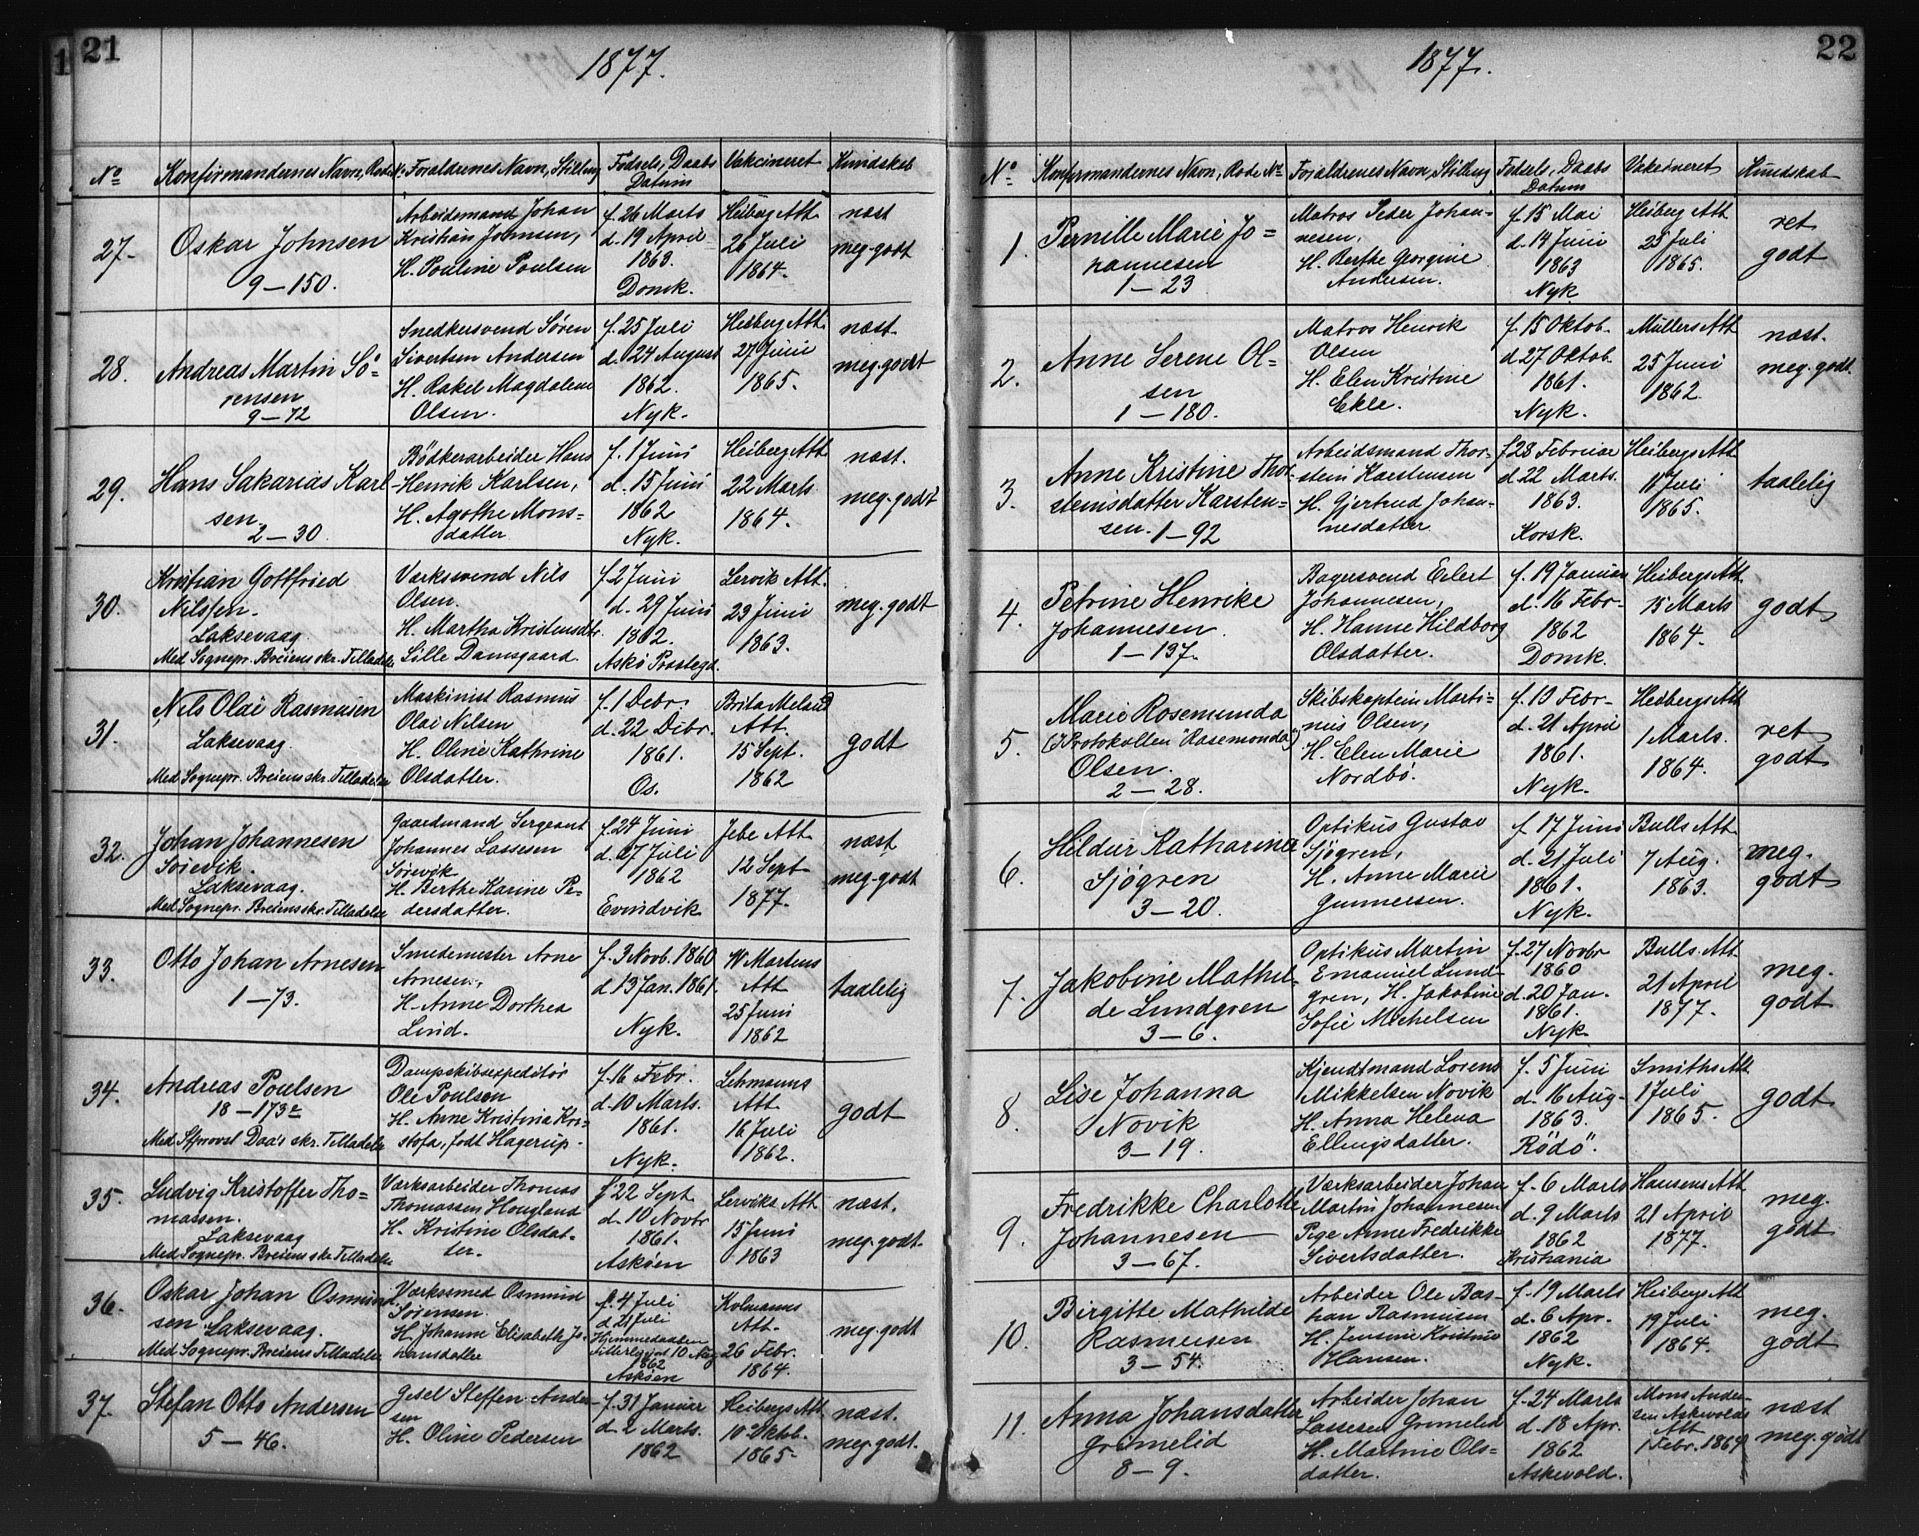 21
1877.
No Konfirmandernes Navn, Rode No Foraldrenes Navn, Stilling Fødsels, Daabs Datum Vakcineret Kundskab
27. Oskar Johnsen
9–150.
Arbeidsmand Johan
Kristian Johnsen,
H. Pouline Poulsen
f. 26 Marts
d. 19 April
1863.
Domk.
Heiberg Att.
26 Juli
1864.
næst
meg. godt
28. Andreas Martin Sö=
rensen
9–72
Snedkersvend Sören
Sivertsen Andersen
H. Rakel Magdalene
Olsen.
f. 25 Juli
d. 24 August
1862.
Nyk.
Heiberg Att.
27 Juni
1865.
næst.
meg. godt
29. Hans Sakarias Karl
sen.
2–30.
Bødkerarbeider Hans
Henrik Karlsen,
H. Agathe Mons=
datter
f. 1 Juni
d. 15 Juni
1862
Nyk.
Heiberg Att.
22 Marts
1864.
næst.
meg. godt
30. Kristian Gottfried
Nilssen.
Laksevaag.
Med Sognepr. Breiens skr. Tilladelse
Værkssvend Nils
Olsen.
H. Martha Kristensdtr.
Lille Damsgaard.
f. 2 Juni
d. 29 Juni
1862.
Askö Præstegd.
Lervik Att.
23 Juni
1863.
meg. godt
31. Nils Olai Rasmusen
Laksevaag.
Med Sognepr. Breiens skr. Tilladelse
Maskinist Rasmus
Olai Nilsen
H. Oline Kathrine
Olsdatter.
f. 1 Debr.
d. 22 Debr.
1861.
Os.
Brita Meland
Att.
15 Sept.
1862
godt
32. Johan Johannesen
Sörevik.
Laksevaag.
Med Sognepr. Breiens skr. Tilladelse
Gaardmand Sergeant
Johannes Lassesen
Sörevik
H. Berthe Karine Pe-
dersdatter.
f. 24 Juni
d. 27 Juli
1862
Evindvik
Jebe Att.
12 Sept.
1877.
næst
meg. godt
33. Otto Johan Arnesen
1–73.
Smedemester Arne
Arnesen,
H. Anne Dorthea
Lind.
f. 3 Novb. 1860
d. 13 Jan. 1861.
Nyk.
W. Martens
Att
25 Juni
1862
taalelig
34. Andreas Poulsen
18–173a
Med Stprovst Daa's skr. Tilladelse
Dampskibsexpeditör
Ole Poulsen
H. Anne Kristina Kri-
stofa, født Hagerup.
f. 16 Febr.
d. 10 Marts.
1861.
Nyk.
Lehmanns
Att
16 Juli
1862.
godt
35. Ludvig Kristoffer Tho=
massen.
Laksevaag
Med Sognepr. Breiens skr. Tilladelse
Værksarbeider Thomas
Thomassen Hougland
H. Kristine Olsdat-
ter.
f. 22 Sept
d. 10 Novbr
1861.
Asköen
Lerviks Att
15 Juni
1863
næst.
meg. godt.
36. Oskar Johan Osmund
sen Laksevaag.
Med Sognepr. Breiens Tilladelse
Værksmed Osmund
Sörensen.
H. Johanne Elisabeth Jo-
hansdatter
f. 4 Juli
d. 21 Juli
Hjemmedaaben
10 Aug
1862
Asköen
Kolmanns
Att.
26 Febr.
1864.
meg. godt
37. Stefan Otto Andersen
5–46.
Gesel Steffen Ander-
sen
H. Oline Pedersen
f. 31 Januar
d. 2 Marts.
1862
Heibergs Att
10 Oktob.
1865.
næst.
meg. godt.
22
1877.
No Konfirmandernes Navn, Rode No Foraldrenes Navn, Stilling Fødsels, Daabs Datum Vakcineret Kundskab
1. Pernille Marie Jo=
hannesen
1–23
Matros Peder Johan-
nesen,
H. Berthe Georgine
Andersen.
f. 15 Mai
d. 14 Juni
1863
Nyk
Heiberg Att
25 Juli
1865.
ret
godt
2. Anne Serene Ol=
sen
1–180.
Matros Henrik
Olsen
H. Elen Kristine
Ekle.
f. 15 Oktob.
d. 27 Oktob.
1861.
Nyk.
Müllers Att
25 Juni
1862.
næst.
meg. godt.
3. Anne Kristine Thor
steinsdatter Karsten-
sen. 1–92
Arbeidsmand Thor-
stein Karstensen
H. Gjertrud Johan-
nesdatter.
f. 28 Februar
d. 22 Marts.
1863.
Korsk.
Heibergs Att
11 Juli
1865.
taalelig
4. Petrine Henrike
Johannesen.
1–137.
Bagersvend Eilert
Johannesen,
H. Hanne Hildborg
Olsdatter.
f. 19 Januar
d. 16 Febr-
1862
Domk.
Heibergs Att.
15 Marts
1864.
godt
5. Marie Rosemunda
(I Protokollen "Rasemonda")
Olsen.
2–28.
Skibskaptein Marti-
nus Olsen,
H. Elen Marie
Nordbö.
f. 13 Febr-
d. 21 April
1861.
Nyk.
Heibergs Att
1 Marts.
1864.
ret
godt
6. Hildur Katharina
Sjögren
3–20.
Optikus Gustav
Sjögren,
H. Anne Marie
Gunnersen.
f. 17 Juni
d. 21 Juli
1861.
Nyk.
Bulls Att.
7 Aug.
1863.
meg.
godt
7. Jakobine Mathil-
de Lundgren
3–6.
Optikus Martin
Emanuel Lund-
gren, H. Jakobine
Sofie Michelsen
f. 27 Novbr
1860
d. 20 Jan.
1861.
Nyk
Bulls. Att.
21 April
1877.
meg.
godt
8. Lise Johanna
Novik
3–19.
Kjendtmand Lorens
Mikkelsen Novik
H. Anna Helena
Ellingsdatter.
f. 5 Juni
d. 16 Aug-
1863.
Rödö"
Smiths Att
1 Juli
1865.
godt
9. Fredrikke Charlotte
Johannesen
3–67.
Værksarbeider Johan
Martin Johannesen
Pige Anne Fredrikke
Sivertsdatter.
f. 6 Marts
d. 9 Marts
1862
Kristiania
Hansens Att
21 April
1877.
meg.
godt
10. Birgitte Mathilde
Rasmusen
3–54.
Arbeider Ole Bas-
han Rasmusen
H. Jensine Kristine
Hansen.
f. 19 Marts
d. 6 Apr.
1862
Nyk.
Heibergs Att
19 Juli
1864.
meg.
godt
11. Anna Johansdatter
Grimelid
8–9.
Arbeider Johan
Lassesen Grimelid
H. Martine Ols-
datter.
f. 24 Marts
d. 18 Apr.
1862
Askevold.
Mons Ander-
sen Askevolds
Att
1 Febr. 1864
næst
meg. godt